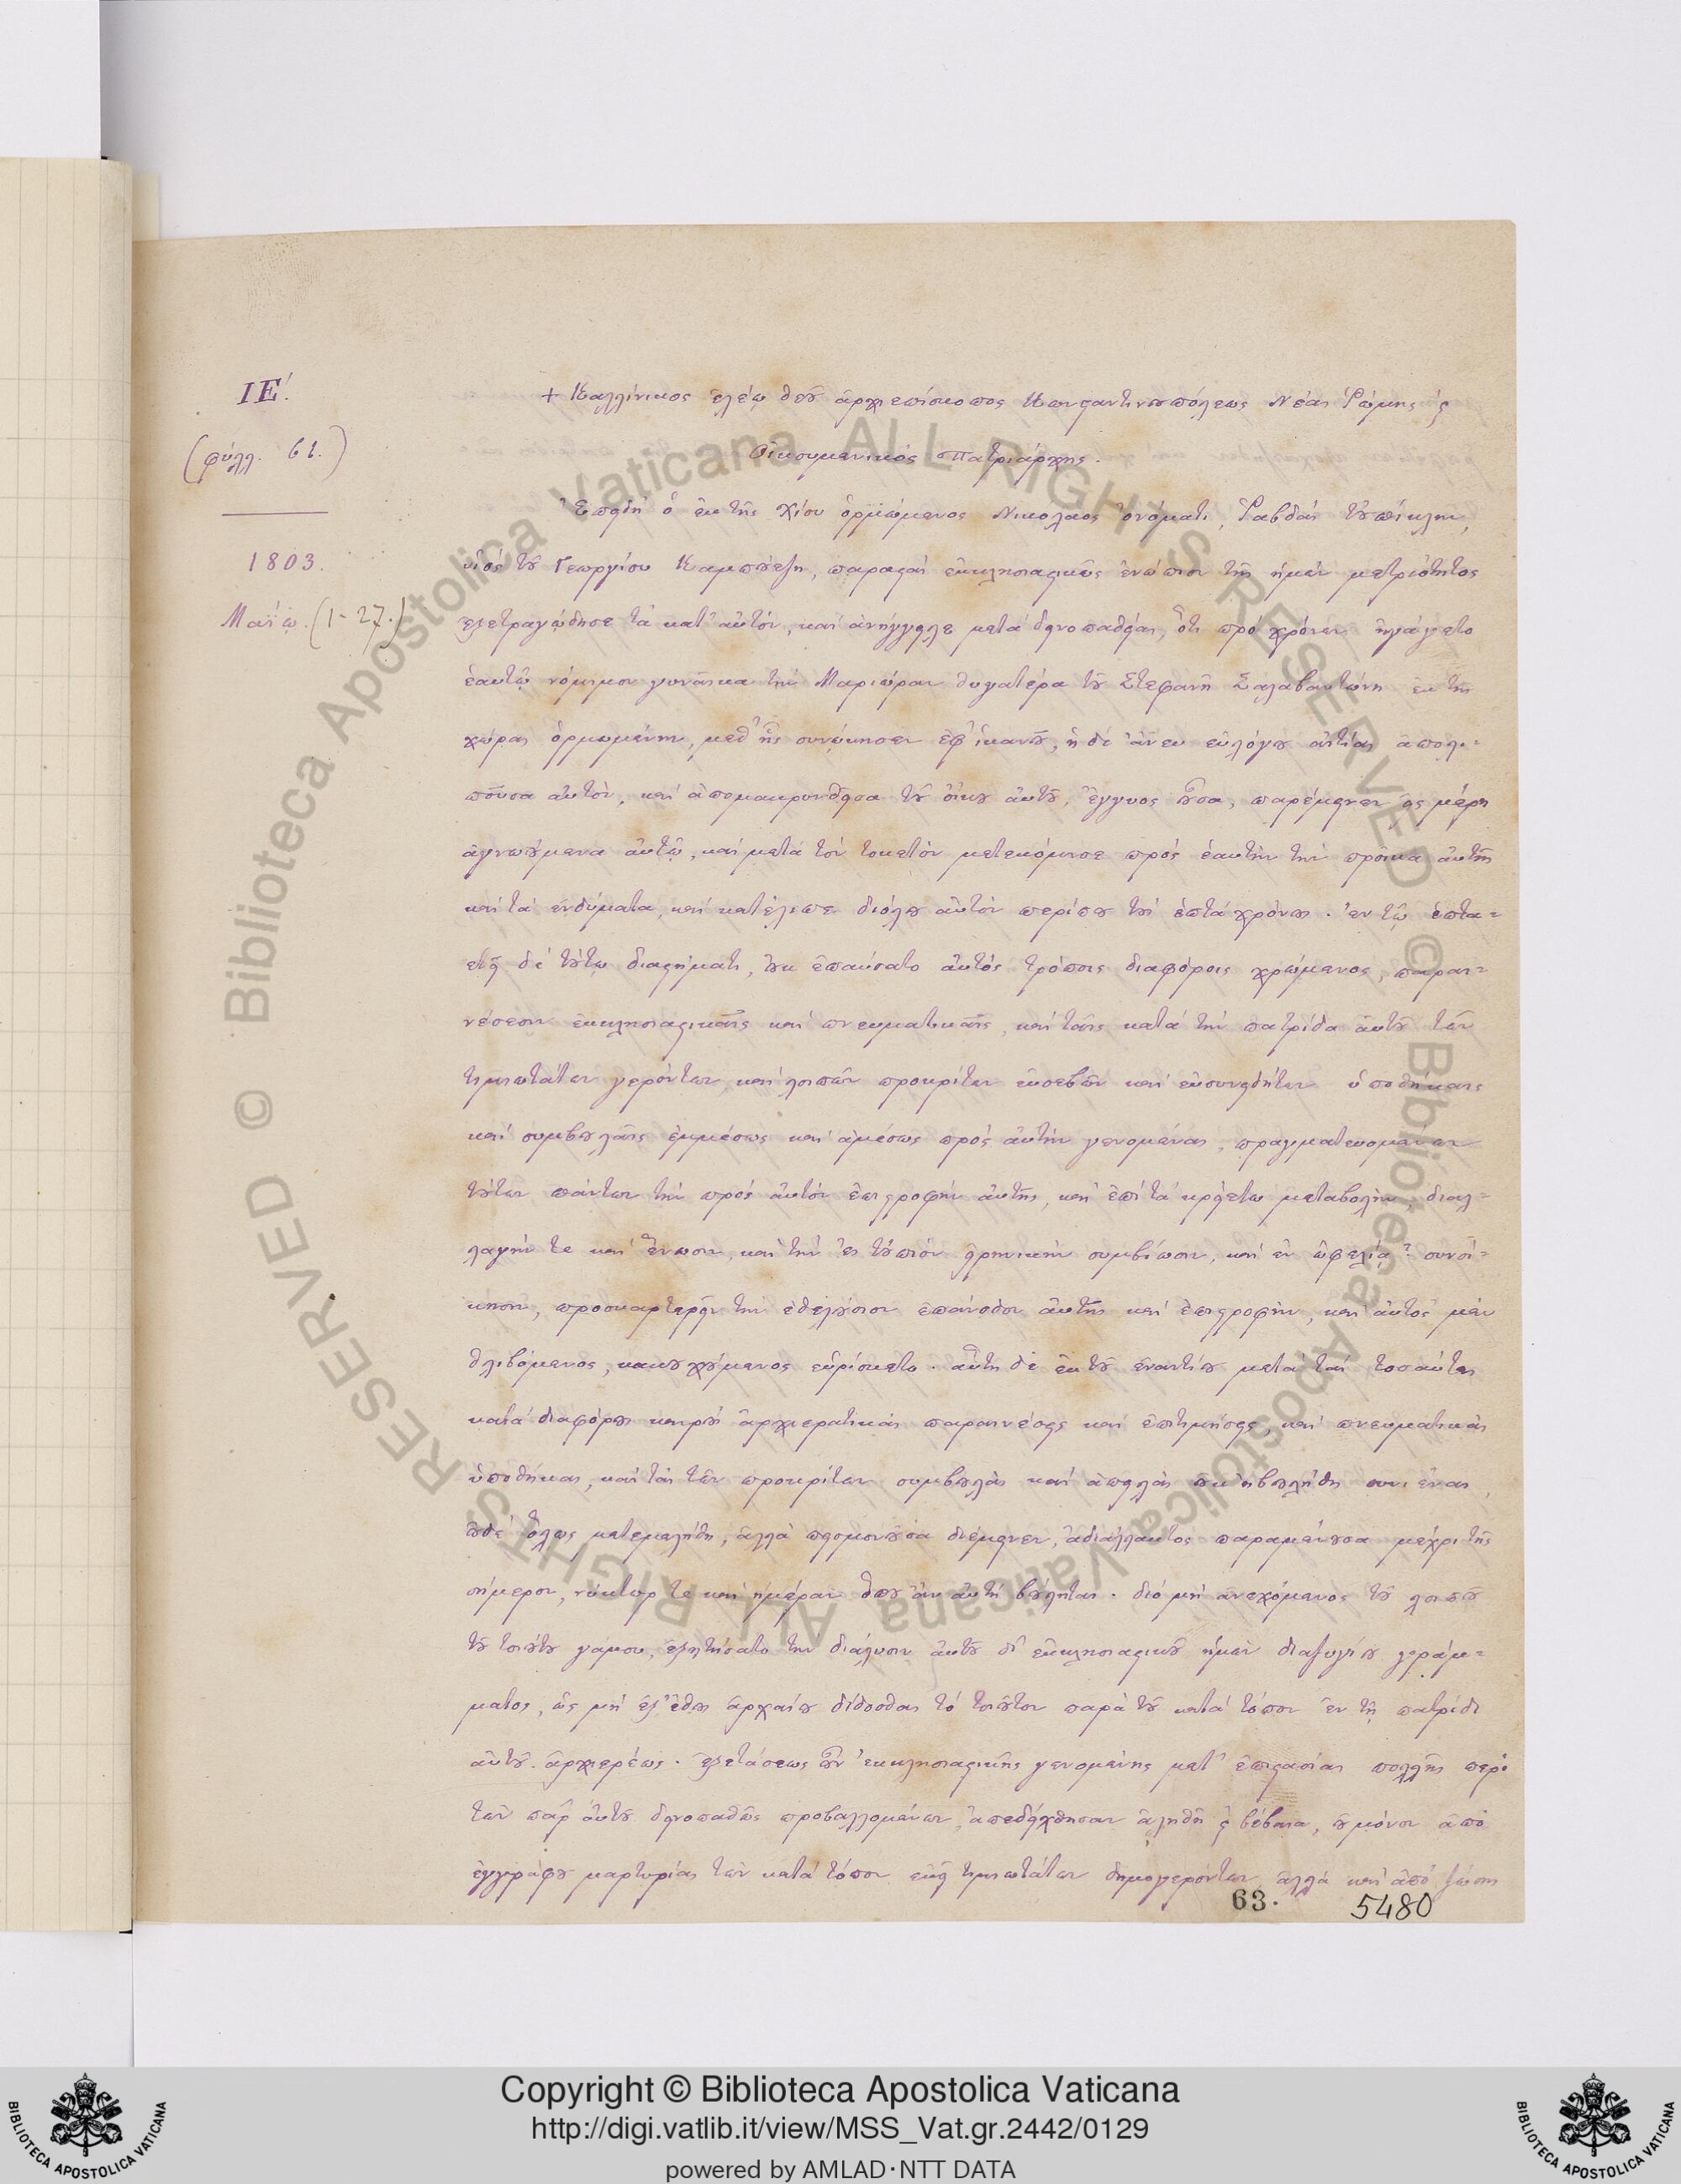 ΙΕ΄.
(φύλλ. 61.)
1803.
Μαΐῳ. (1-27.)
+ Καλλίνικος ἐλέῳ θεοῦ ἀρχιεπίσκοπος Κωνσταντινουπόλεως Νέας Ῥώμης καὶ
Οἰκουμενικὸς Πατριάρχης.
Ἐπειδὴ ὁ ἐκ τῆς Χίου ὁρμώμενος Νικόλαος ὀνόματι, Ῥαβδᾶς τοὐπίκλην,
υἱὸς τοῦ Γεωργίου, παραστὰς ἐκκλησιαστικῶς ἐνώπιον τῆς ἡμῶν μετριότητος
ἐξετραγῴδησε τὰ κατ' αὐτόν, καὶ ἀνήγγειλε μετὰ δεινοπαθείας, ὅτι πρὸ χρόνων ἠγάγετο
ἑαυτῷ νόμιμον γυναῖκα τὴν Μαριώραν θυγατέρα τοῦ Στεφανῆ ἐκ τῆς
χώρας ὁρμωμένην, μεθ' ἧς συνῴκησεν ἐφ' ἱκανοῦ, ἡ δὲ ἄνευ εὐλόγου αἰτίας ἀπολι-
ποῦσα αὐτόν, καὶ ἀπομακρυνθεῖσα τοῦ οἴκου αὐτοῦ, ἔγγυος οὖσα, παρέμεινεν εἰς μέρη
ἀγνωούμενα αὐτῷ, καὶ μετὰ τὸν τοκετὸν μετεκόμισε πρὸς ἑαυτὴν τὴν προῖκα αὐτῆς
καὶ τὰ ἐνδύματα, καὶ κατέλιπε διόλου αὐτὸν περίπου τοὺς ἑπτὰ χρόνους. ἐν τῷ ἑπτα-
ετεῖ δὲ τούτῳ διαστήματι, οὐκ ἐπαύσατο αὐτὸς τρόποις διαφόροις χρώμενος, παραι-
νέσεσιν ἐκκλησιαστικαῖς καὶ πνευματικαῖς, καὶ ταῖς κατὰ τὴν πατρίδα αὐτοῦ τῶν
τιμιωτάτων γερόντων καὶ λοιπῶν προκρίτων εὐσεβῶν καὶ εὐσυνειδήτων ὑποθήκαις
καὶ συμβουλαῖς ἐμμέσως καὶ ἀμέσως πρὸς αὐτὴν γενομέναις, πραγματευομένων
τούτων πάντων τὴν πρὸς αὐτὸν ἐπιστροφὴν αὐτῆς, καὶ ἐπὶ τὰ κρείττω μεταβολήν, διαλ-
λαγήν τε καὶ ἕνωσιν, καὶ τὴν εἰς τοὐπιὸν εἰρηνικὴν συμβίωσιν, καὶ ἐν ὠφελείᾳ? συνοί-
κησιν, προσκαρτερεῖν τὴν ἐθελούσιον ἐπάνοδον αὐτῆς καὶ ἐπιστροφήν, καὶ αὐτὸς μὲν
θλιβόμενος, κακουχούμενος εὑρίσκετο. αὕτη δὲ ἐκ τοῦ ἐναντίου μετὰ τὰς τοσαύτας
κατὰ διαφόρους καιροὺς ἀρχιερατικὰς παραινέσεις καὶ ἐπιτιμήσεις, καὶ πνευματικὰς
ὑποθήκας, καὶ τὰς τῶν προκρίτων συμβουλὰς καὶ ἀπειλὰς οὐκ ἠβουλήθη συνιέναι,
οὐδὲ ὅλως μετεμελήθη, ἀλλὰ πεισμονοῦσα διέμεινεν, ἀδιάλλακτος παραμένουσα μέχρι τῆς
σήμερον, νύκτωρ τε καὶ ἡμέραν ὅπου ἂν αὐτὴ βούληται. διὸ μὴ ἀνεχόμενος τοῦ λοιποῦ
τοῦ τοιούτου γάμου, ἐζητήσατο τὴν διάλυσιν αὐτοῦ δι' ἐκκλησιαστικοῦ ἡμῶν διαζυγίου γράμ-
ματος, ὡς μὴ ἐξ ἔθους ἀρχαίου δίδοσθαι τὸ τοιοῦτον παρὰ τοῦ κατὰ τόπον ἐν τῇ πατρίδι
αὐτοῦ ἀρχιερέως. ἐξετάσεως οὖν ἐκκλησιαστικῆς γενομένης μετ' ἐπιστασίας πολλῆς περὶ
τῶν παρ' αὐτοῦ δεινοπαθῶς προβαλλομένων, ἀπεδείχθησαν ἀληθῆ καὶ βέβαια, οὐ μόνον ἀπὸ
ἐγγράφου μαρτυρίας τῶν κατὰ τόπον ἐκεῖ τιμιωτάτων δημογερόντων, ἀλλὰ καὶ ἀπὸ ζώσης
63.
5480
Copyright © Biblioteca Apostolica Vaticana
http://digi.vatlib.it/view/MSS_Vat.gr.2442/0129
powered by AMLAD·NTT DATA